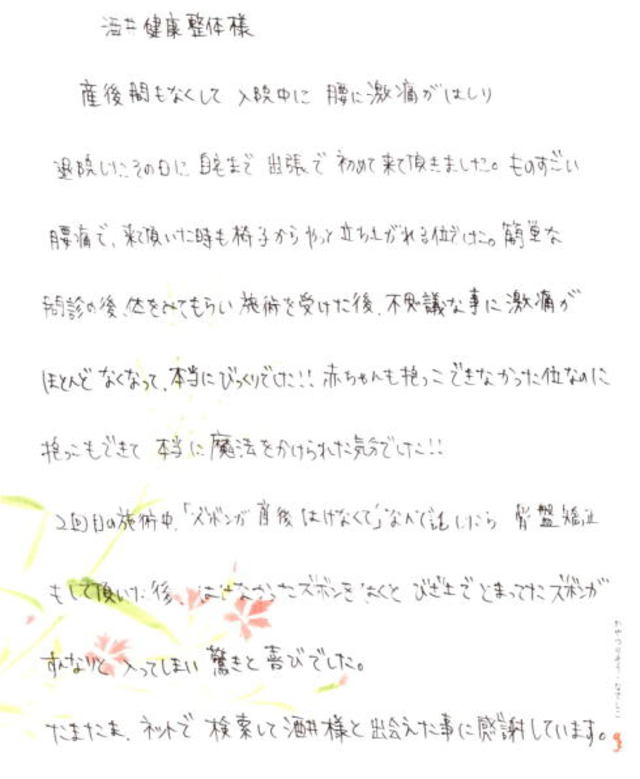 酒井健康整体様
産後間もなくして 入院中に 腰に激痛がはしり
退院したその日に 自宅まで 出張で 初めて来て頂きました。ものすごい
腰痛で、来て頂いた時も椅子からやっと立ち上がれる位でした。簡単な
問診の後、体をみてもらい 施術を受けた後、不思議な事に激痛が
ほとんど なくなって、本当にびっくりでした!! 赤ちゃんも抱っこできなかった位なのに
抱っこもできて 本当に魔法をかけられた気分でした!!
2回目の施術中、「ズボンが産後はけなくて」なんて話したら 骨盤矯正
もして頂いた後、はけなかったズボンをはくと ひざ上でとまってたズボンが
すんなりと 入ってしまい 驚きと喜びでした。
たまたま、ネットで 検索して酒井様と出会えた事に感謝しています。